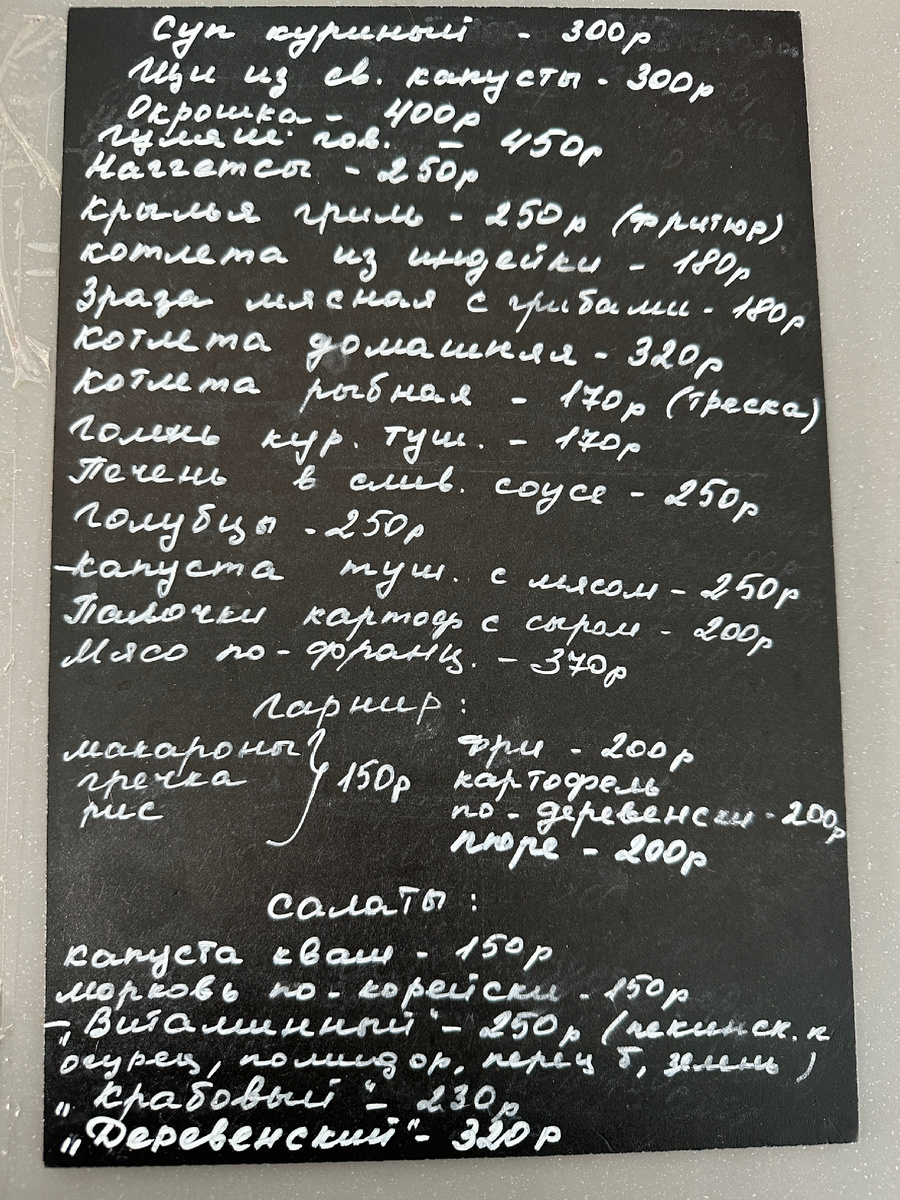 Суп куриный - 300р
Щи из св. капусты - 300р
Окрошка - 400р
гуляш. гов. - 450р
Наггетсы - 250р
крылья гриль - 250р (фритюр)
котлета из индейки - 180р
Зраза мясная с грибами - 180р
Котлета домашняя - 320р
котлета рыбная - 170р (треска)
голень кур. туш. - 170р
Печень в слив. соусе - 250р
голубцы - 250р
-капуста туш. с мясом - 250р
Палочки картоф с сыром - 200р
Мясо по-франц. - 370р
Гарнир:
макароны
гречка
рис
150р
фри - 200р
картофель
по-деревенски - 200р
пюре - 200р
Салаты:
капуста кваш - 150р
морковь по-корейски - 150р
- „Витаминный" - 250р (пекинск. к
огурец, помидор, перец б, зелень)
„Крабовый" - 230р
„Деревенский" - 320р